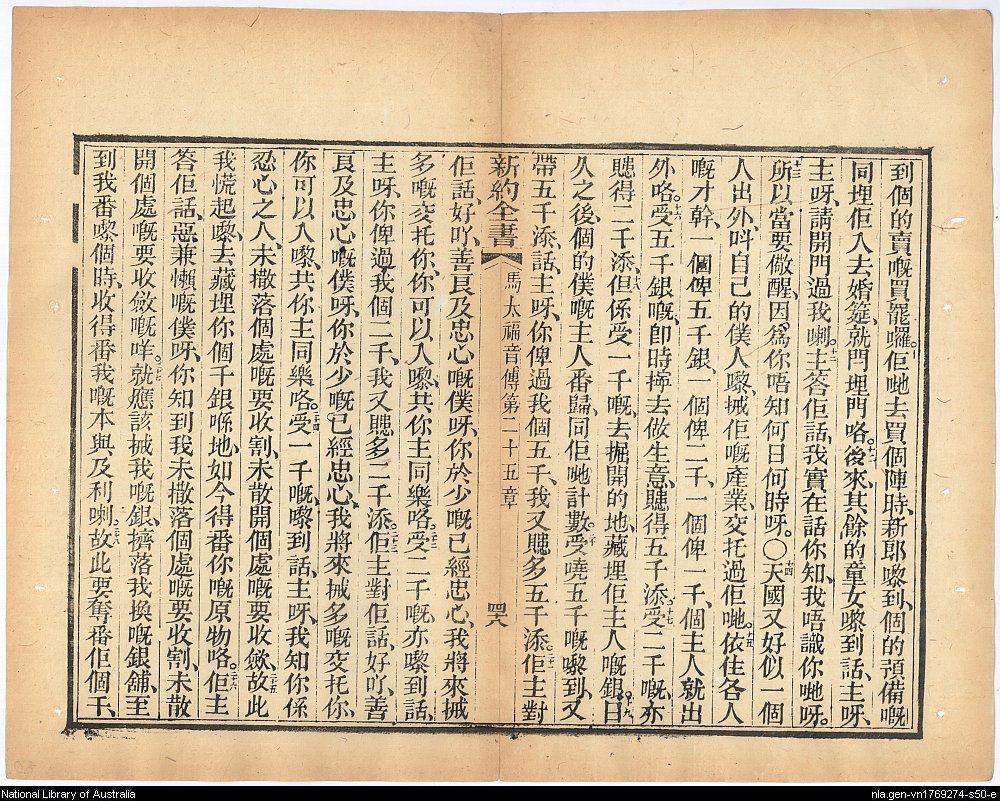 到個的賣嘅買罷囉。十佢哋去買個陣時、新郎嚟到、個的預備嘅
同埋佢入去婚筵、就門埋門咯。十一後來、其餘的童女嚟到話、主呀、
主呀、請開門過我喇。十二主答佢話、我實在話你知、我唔識你哋呀。
十三所以當要儆醒、因爲你唔知何日何時呀。〇十四天國又好似一個
人出外、呌自己的僕人嚟、搣佢嘅產業、交托過佢哋。十五依住各人
嘅才幹、一個俾五千銀、一個俾二千、一個俾一千、個主人就出
外咯。十六受五千銀嘅、卽時擰去做生意、賺得五千添。十七受二千嘅、亦
賺得二千添。十八但係受一千嘅、去掘開的地、藏埋佢主人嘅銀。十九日
久之後、個的僕嘅主人番歸、同佢哋計數。二十受嘵五千嘅嚟到、又
帶五千添、話、主呀、你俾過我個五千、我又賺多五千添。二一佢主對
新約全書 馬太福音傳第二十五章 四六
佢話、好吖、善良及忠心嘅僕呀、你於少嘅已經忠心、我將來搣
多嘅交托你、你可以入嚟、共你主同樂咯。二二受二千嘅亦嚟到話、
主呀、你俾過我個二千、我又賺多二千添。二三佢主對佢話、好吖、善
良及忠心嘅僕呀、你於少嘅已經忠心、我將來搣多嘅交托你、
你可以入嚟、共你主同樂咯。二四受一千嘅、嚟到話、主呀、我知你係
忍心之人、未撒落個處嘅要收割、未散開個處嘅要收歛、二五故此
我慌起嚟、去藏埋你個千銀喺地、如今得番你嘅原物咯。二六佢主
答佢話、惡兼懶嘅僕呀、你知到我未撒落個處嘅要收割、未散
開個處嘅要收斂嘅咩。二七就應該搣我嘅銀、擠落我換嘅銀舖、至
到我番嚟個時、收得番我嘅本與及利喇。二八故此要奪番佢個千、
National Library of Australia
nla.gen-vn1769274-s50-e